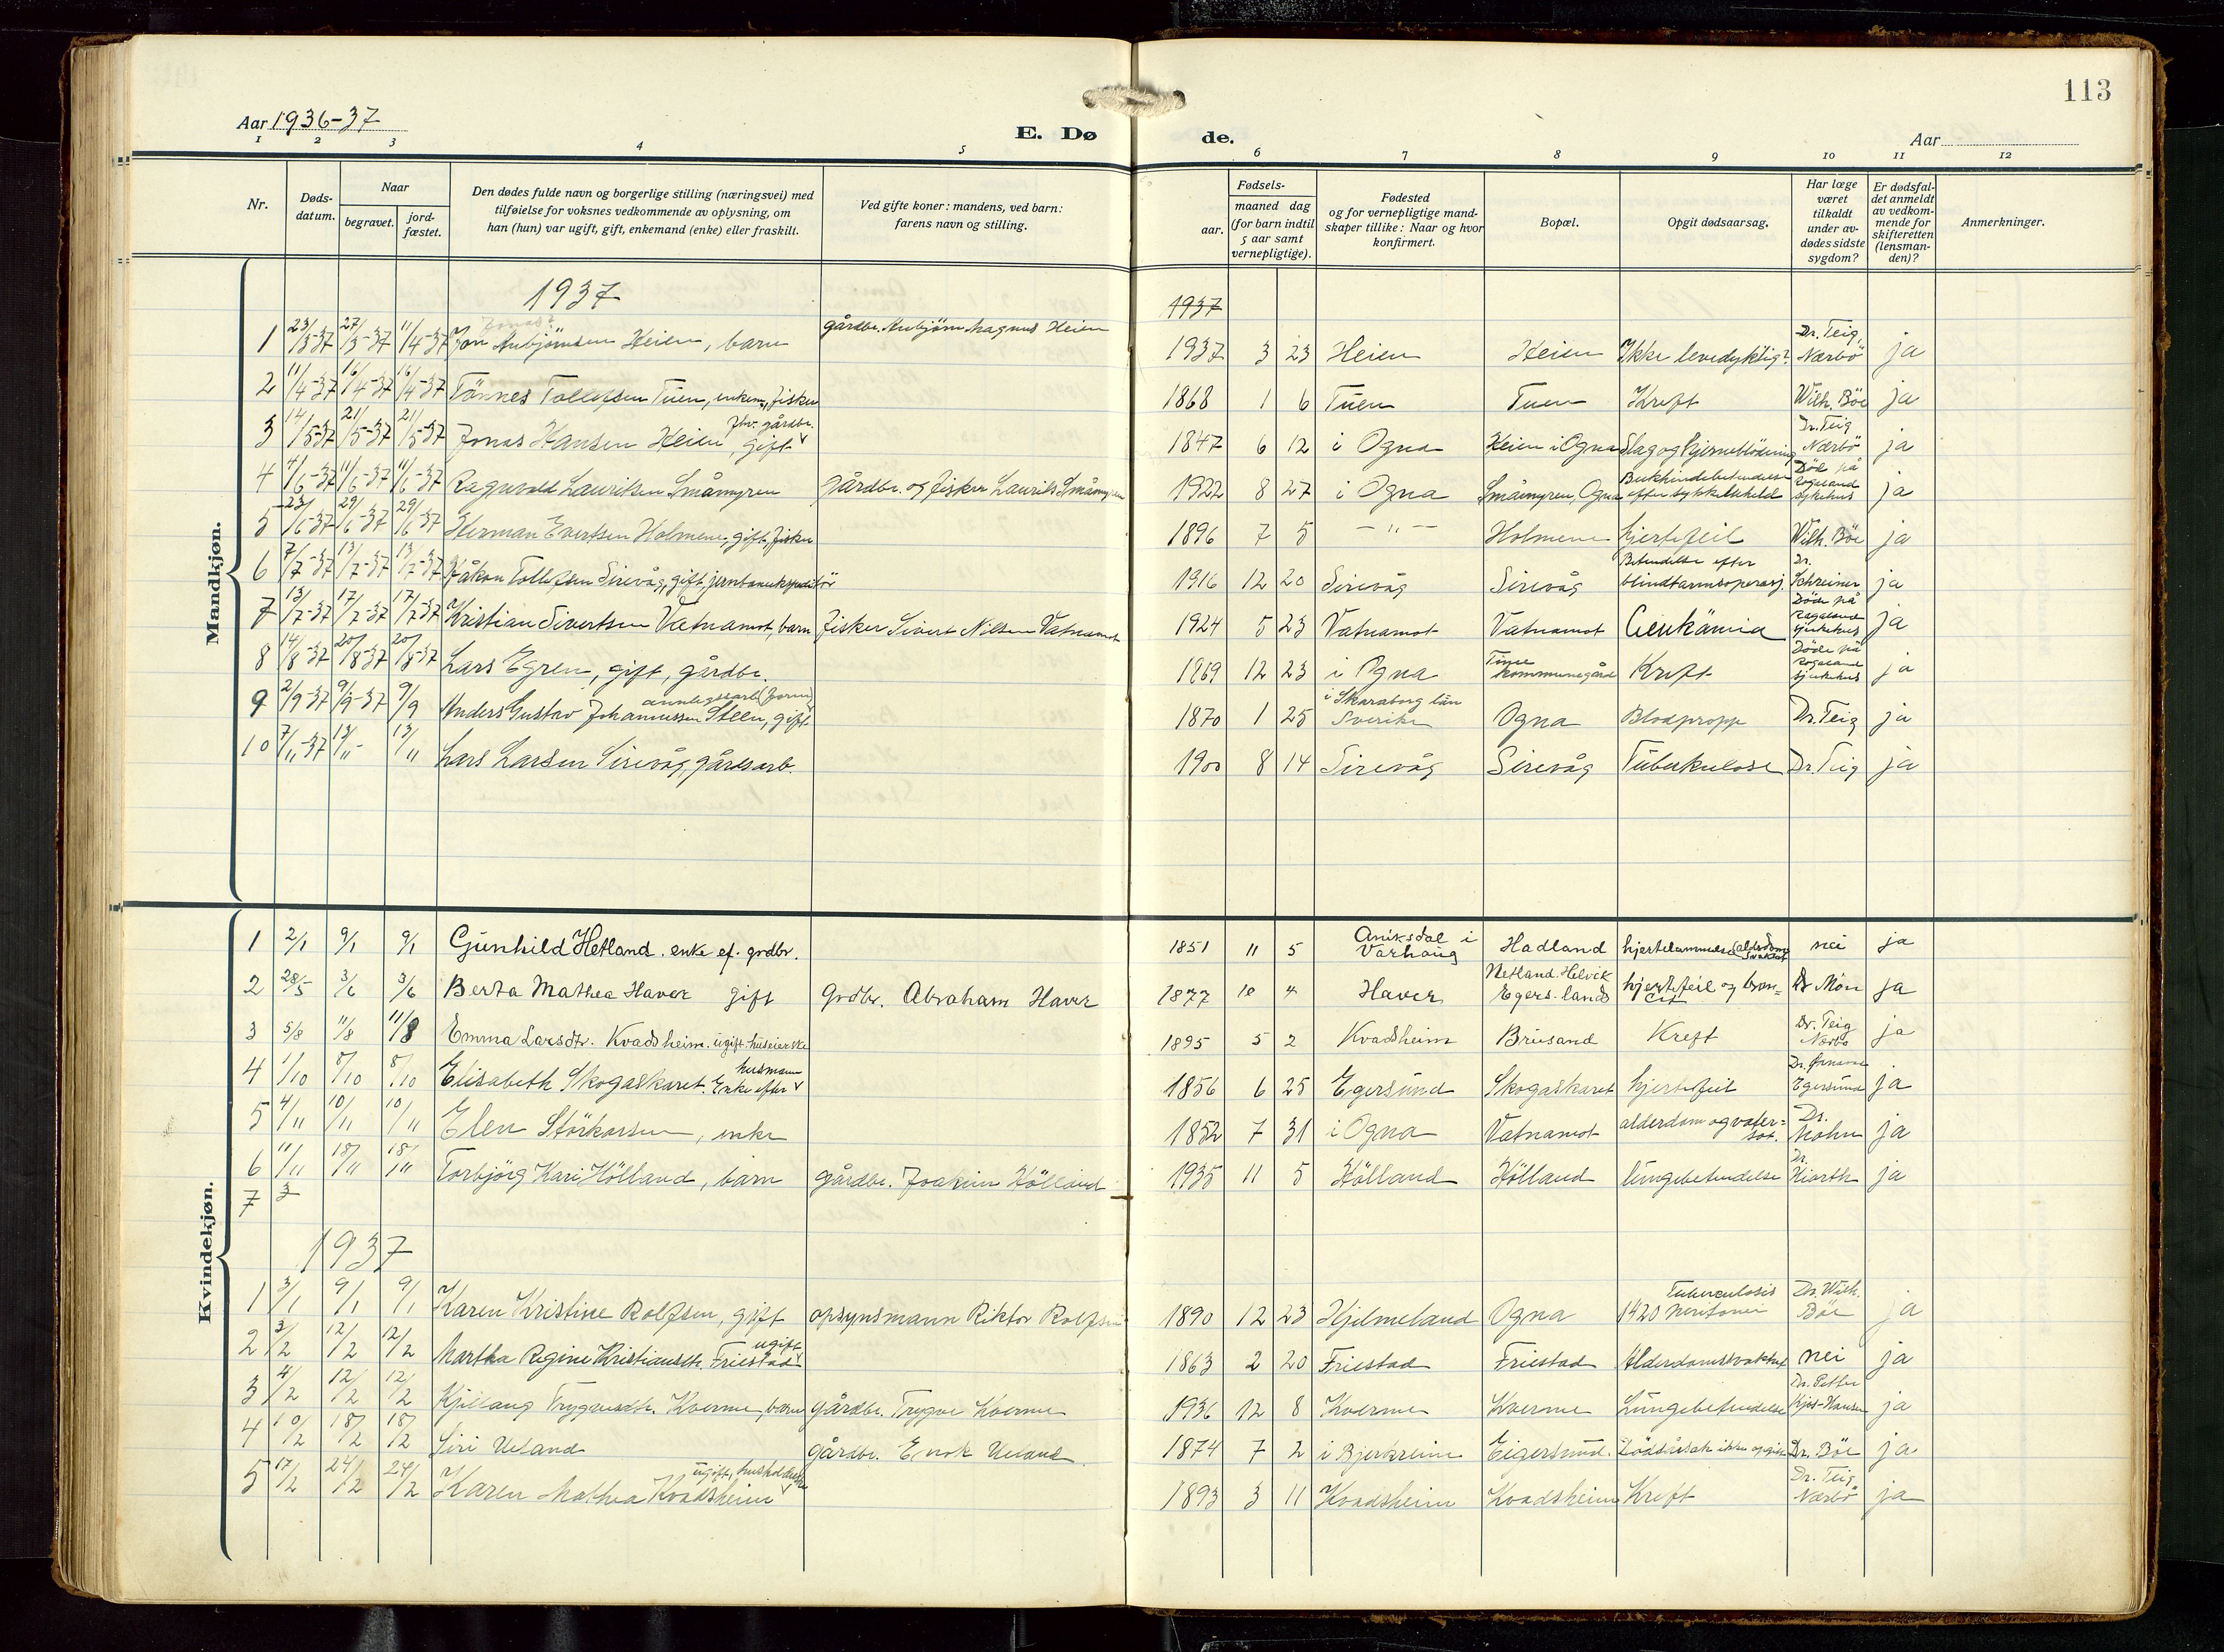 113
Aar 1936-37
E. Dø
de.
Aar
1 2 3 4 5 6 7 8 9 10 11 12
Nr.
Døds-
datum.
Naar
begravet.
jord-
fæstet.
Den dødes fulde navn og borgerlige stilling (næringsvei) med
tilføielse for voksnes vedkommende av oplysning, om
han (hun) var ugift, gift, enkemand (enke) eller fraskilt.
Ved gifte koner: mandens, ved barn:
farens navn og stilling.
Fødsels-
aar.
maaned dag
(for barn indtil
5 aar samt
vernepligtige).
Fødested
og for vernepligtige mand-
skaper tillike: Naar og hvor
konfirmert.
Bopæl.
Opgit dødsaarsag.
Har læge
været
tilkaldt
under av-
dødes sidste
sygdom?
Er dødsfal-
det anmeldt
av vedkom-
mende for
skifteretten
(lensman-
den)?
Anmerkninger.
Mandkjøn.
1937
1937
1 23/3-37 27/3-37 11/4-37 Jon Anbjörnsen Heien, barn gårdbr. Anbjørn Magnus Heien 1937 3 23 Heien Heien Ikke levedyktig? Dr. Teig, Nærbö ja
2 11/4-37 16/4-37 16/4-37 Tönnes Tollefsen Tuen, enkem, fisker 1868 1 6 Tuen Tuen Kreft Wilh. Böe ja
3 14/5-37 21/5-37 21/5-37 Jonas Hansen Heien, gift fhv. gårdbr. 1847 6 12 i Ogna Heien i Ogna Slag og hjerneblödning Dr. Teig Nærbö ja
4 4/6-37 11/6-37 11/6-37 Ragnvald Lauritsen Småmyren gårdbr. og fisker Laurits Småmyren 1922 8 27 i Ogna Småmyren, Ogna Bukhindebetendelse efter Död på Rogaland sykehus ja
5 23/6-37 29/6-37 29/6-37 Herman Evertsen Holmene, gift, fisker 1896 7 5 -"- Holmene hjertefeil Wilh. Böe ja
6 7/7-37 13/7-37 13/7-37 Håkon Tollefsen Sirevåg, gift, jernbaneekspeditör 1916 12 20 Sirevåg Sirevåg Betendelse efter blindtarmsoperasj. Dr. Schreiner ja
7 13/7-37 17/7-37 17/7-37 Kristian Sivertsen Vatnamot, barn fisker Sivert Nilsen Vatnamot 1924 5 23 Vatnamot Vatnamot Leukämia Döde på Rogaland sjukehus ja
8 14/8-37 20/8-37 20/8-37 Lars Egren, gift, gårdbr. 1869 12 23 i Ogna Time kommunegård Kreft Döde på Rogaland sjukehus ja
9 2/9-37 9/9-37 9/9 Anders Gustav Johannessen Steen, gift anleggsarb. (form) 1870 1 25 i Skaraborg län Sverike Ogna Blodpropp Dr. Teig ja
10 7/11-37 13/11- 13/11 Lars Larsen Sirevåg, gårdsarb. 1900 8 14 Sirevåg Sirevåg Tuberkulose Dr. Teig ja
Kvindekjøn.
1 2/1 9/1 9/1 Gunhild Hetland. enke ef. grdbr. 1851 11 5 Aniksdal i Varhaug Hadland hjertelammelse (alderdomssvakhet nei ja
2 28/5 3/6 3/6 Berta Mathea Haver gift Grdbr. Abraham Haver 1877 10 4 Haver Netland. Helvik Egers. land hjertefeil og bron= Dr Mön ja
3 5/8 11/8 11/8 Emma Larsdtr. Kvadsheim. ugift. huseierske 1895 5 2 Kvadsheim Brusand Kreft Dr. Teig Nærbø ja
4 1/10 8/10 8/10 Elisabeth Skogaskaret. Enke efter husmann 1856 6 25 Egersund Skogaskaret hjertefeil Egersund ja
5 4/11 10/11 10/11 Elen Störkersen, enke 1852 7 31 i Ogna Vatnamot alderdom og vater= sot. Dr. Mohn ja
6 11/11 18/11 18/11 Torbjörg Kari Hölland, barn gårdbr. Joakim Hölland 1935 11 5 Hölland Hölland lungebetendelse Dr. Kiarth ja
7 3
1937
1 3/1 9/1 9/1 Karen Kristine Rolfsen, gift opsynsmann Riktor Rolfsen 1890 12 23 Hjelmeland Ogna 1420 Tuberculosis peritonei Dr. Wilh. Böe ja
2 3/2 12/2 12/2 Martha Regine Kristiansdtr. Friestad ugift 1863 2 20 Friestad Friestad Alderdomssvakhet nei ja
3 4/2 12/2 12/2 Kjellaug Trygvesdtr. Kverme, barn gårdbr. Trygve Kverme 1936 12 8 Kverme Kverme Lungebetendelse Dr. Petter -Hansen ja
4 10/2 18/2 18/2 Siri Ueland gårdbr. Enok Ueland 1874 7 2 i Bjerkreim Eigersund. Dödsårsak ikke opgitt Dr. Böe ja
5 17/2 24/2 24/2 Karen Mathea Kvadsheim ugift, husholderske 1893 3 11 Kvadsheim Kvadsheim Kreft Dr. Teig, Nærbö ja